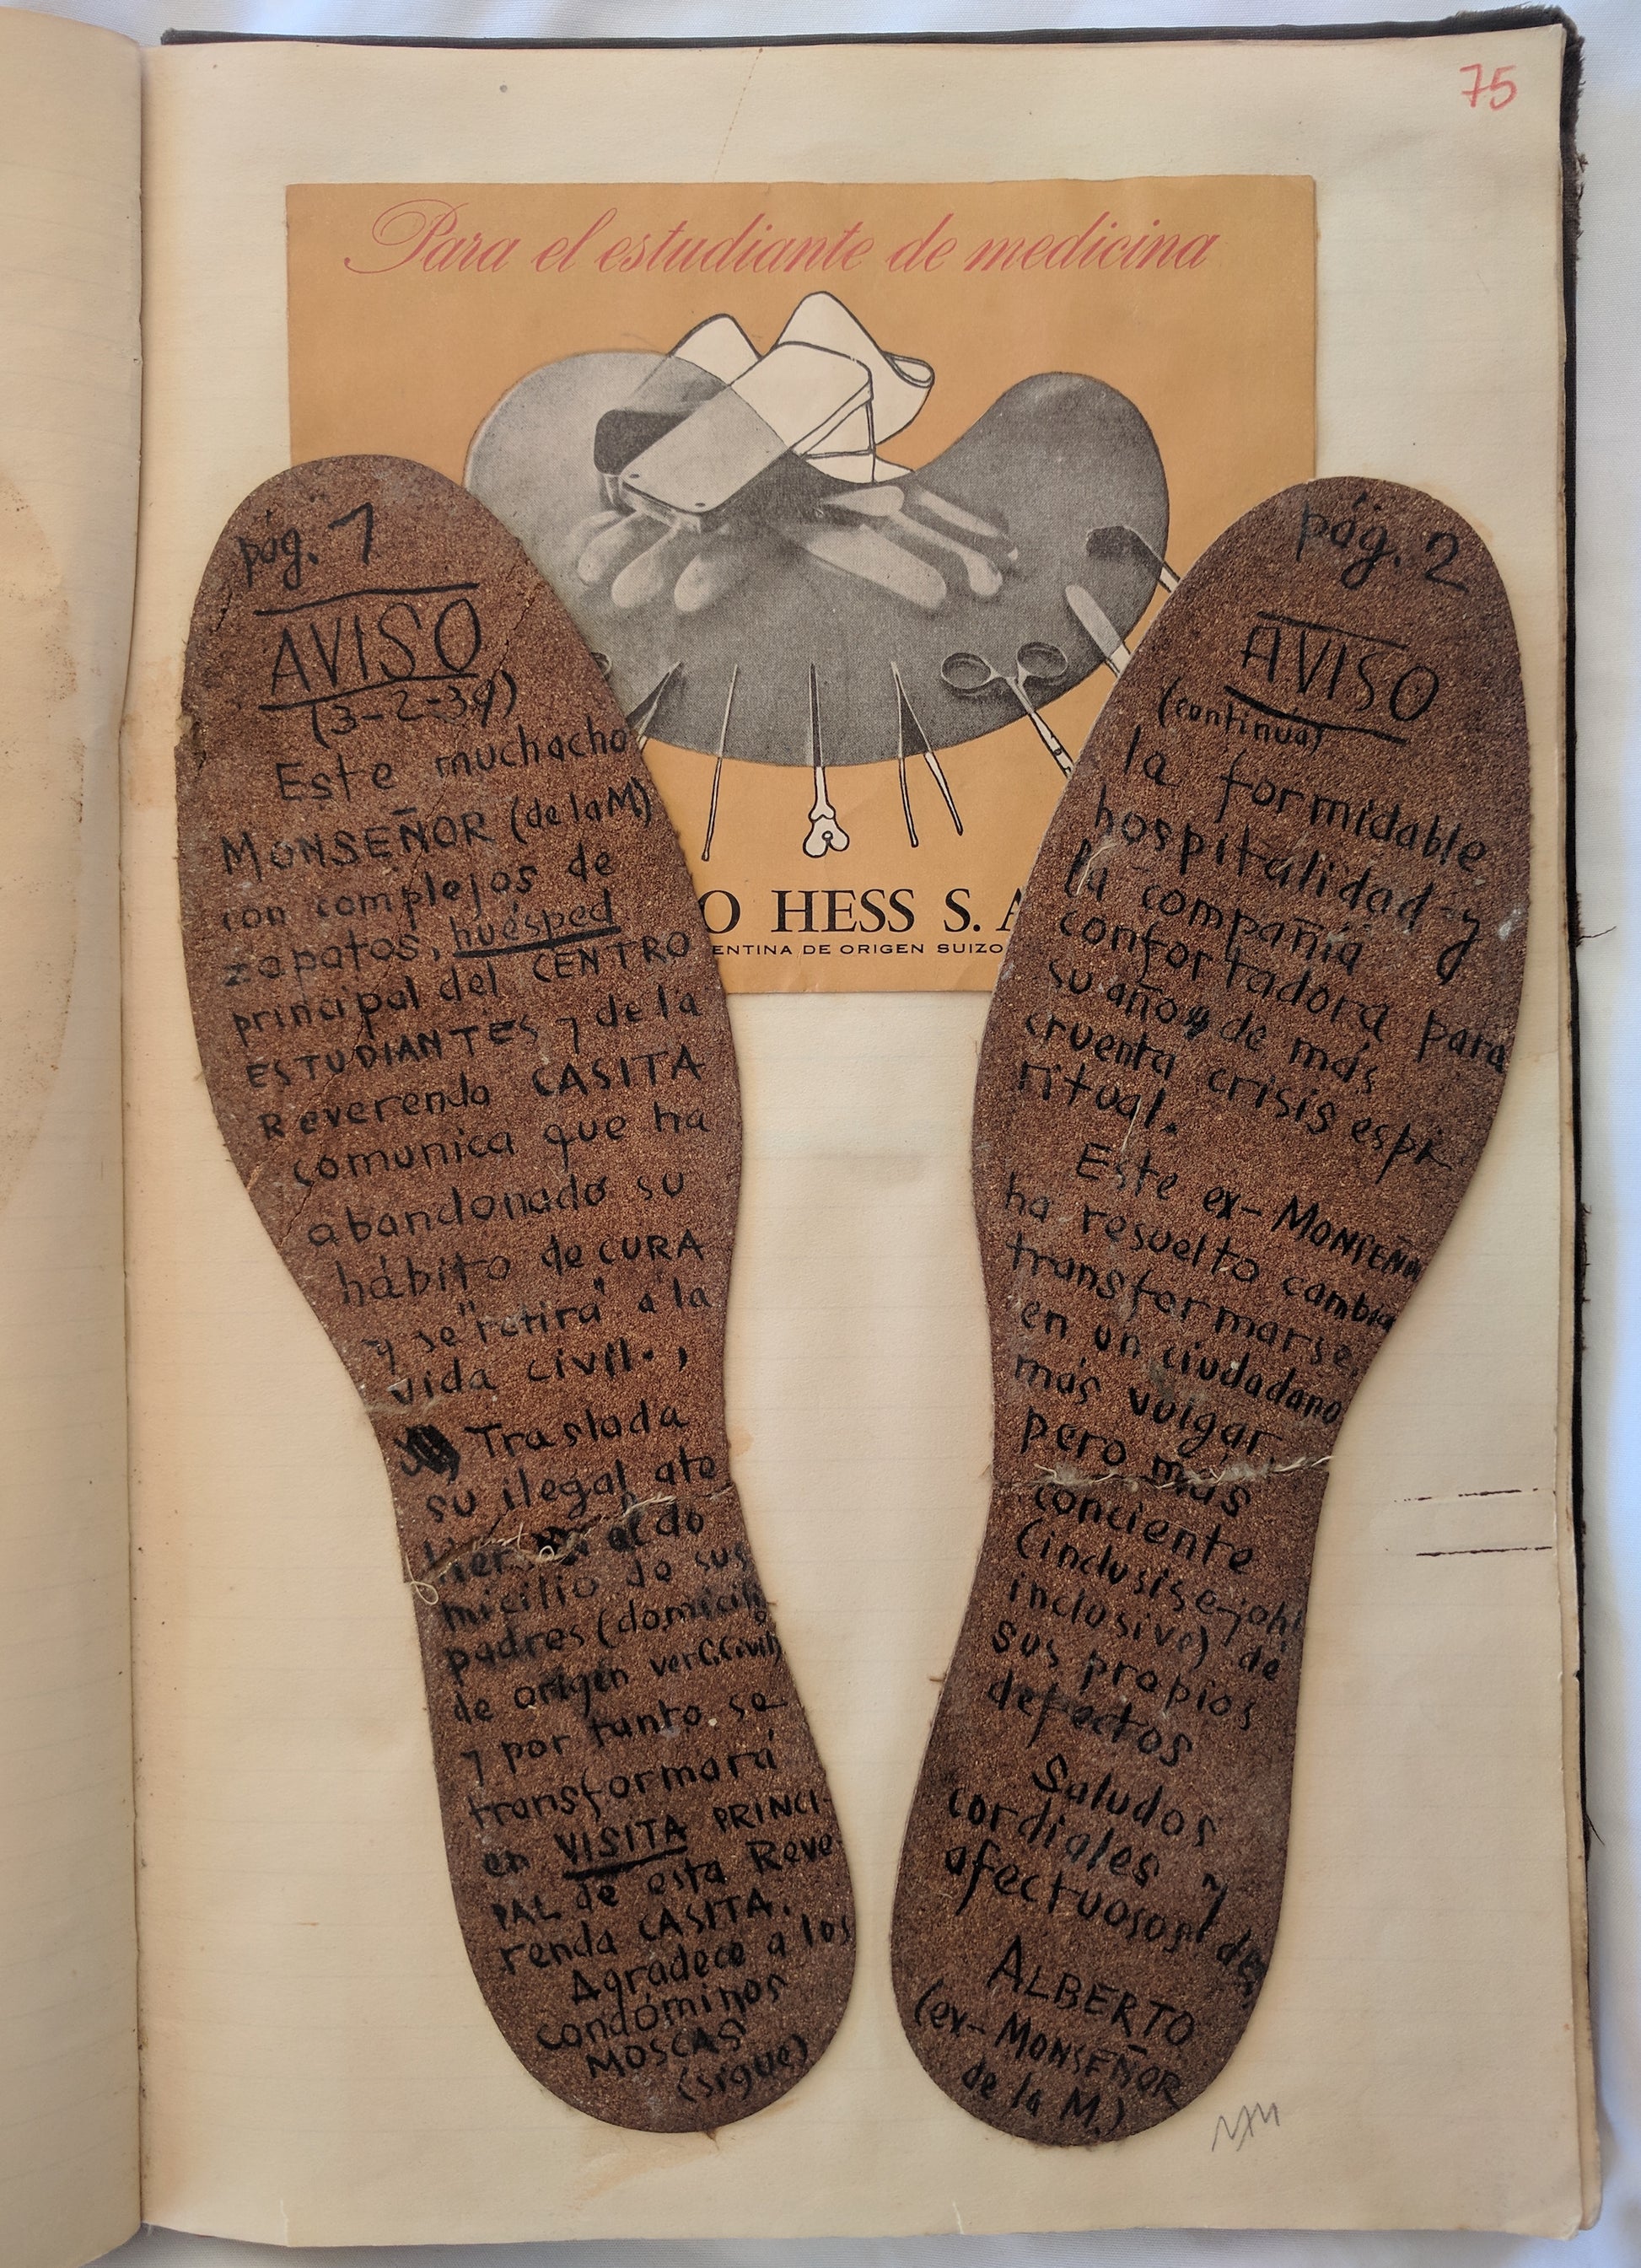 75
Para el estudiante de medicina
O HESS S. A
ENTINA DE ORIGEN SUIZO
pág. 1
AVISO
(3-2-39)
Este muchacho
MONSEÑOR (de la M)
con complejos de
zapatos, huésped
principal del CENTRO
ESTUDIANTES y de la
Reverenda CASITA
comunica que ha
abandonado su
hábito de CURA
y se "retira" a la
vida civil.,
Traslada
su ilegal ate
lier al do
micilio de sus
padres (domicilio
de origen ver C. Civil)
y por tanto se
transformará
en VISITA PRINCI-
PAL de esta Reve-
renda CASITA.
Agradece a los
condóminos
MOSCAS
(sigue)
pág. 2
AVISO
(continúa)
la formidable
hospitalidad y
la compañía
confortadora para
su año de más
cruenta crisis espi-
ritual.
Este ex-MONSEÑOR
ha resuelto cambiar
transformarse
en un ciudadano
más vulgar
pero más
conciente
(inclusise ¡oh!
inclusive) de
sus propios
defectos
Saludos
cordiales y
afectuosos de
ALBERTO
(ex-MONSEÑOR
de la M.)